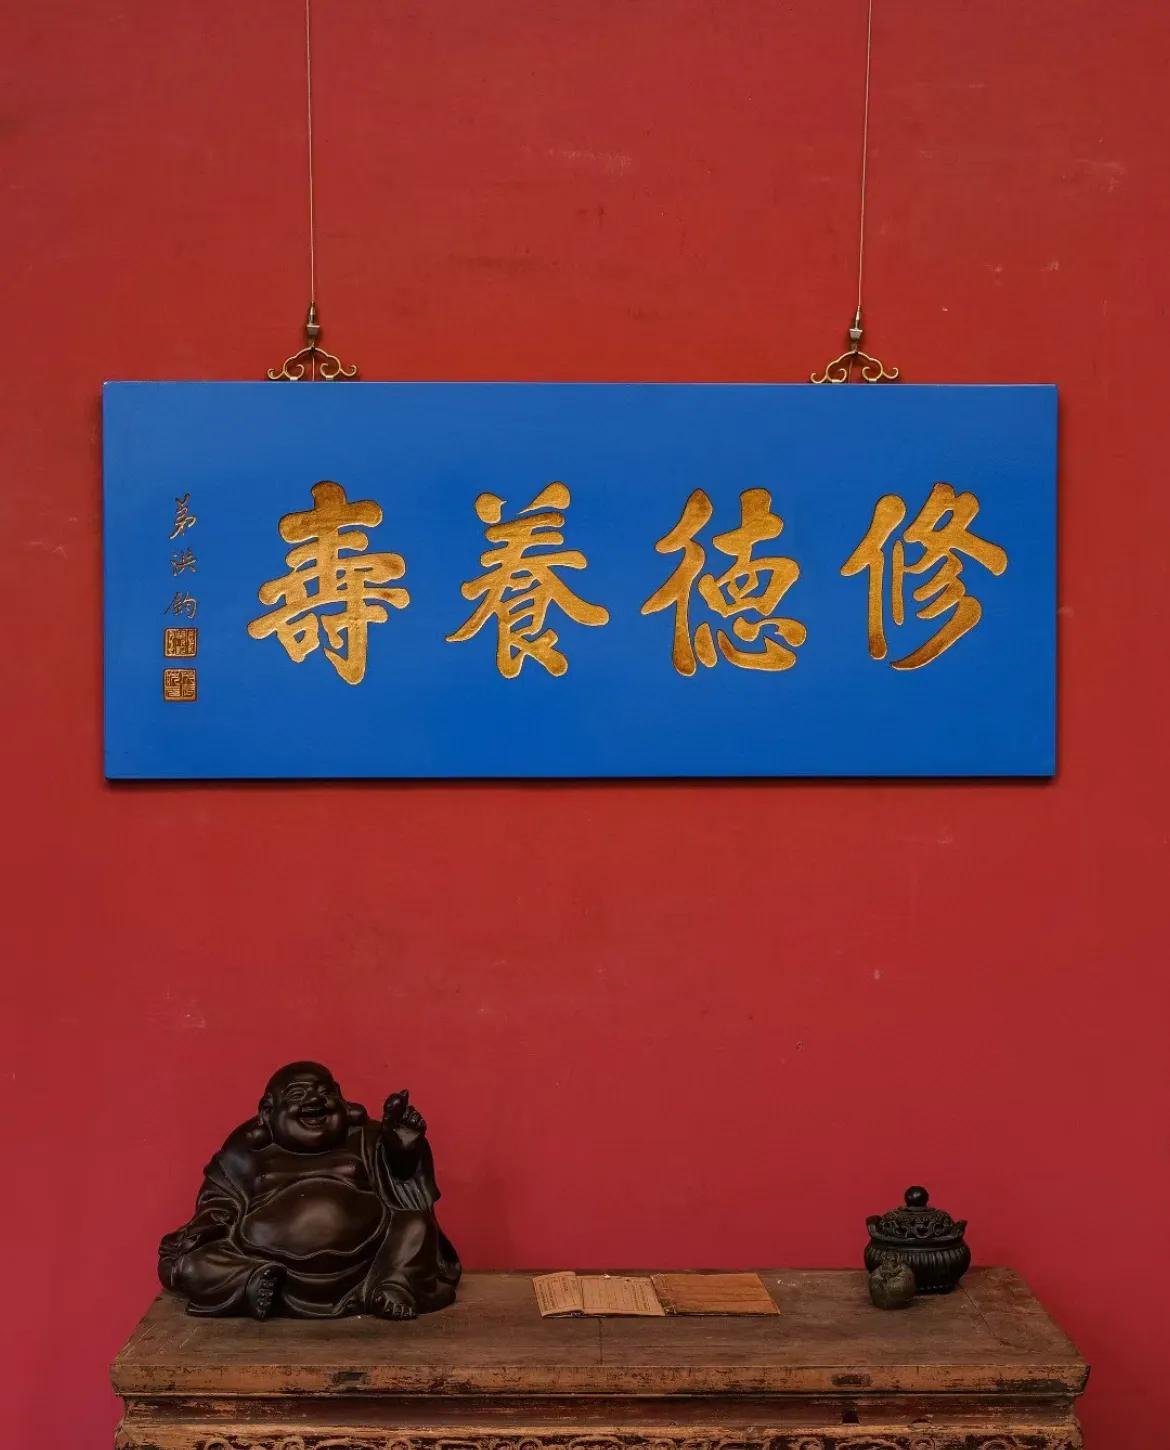 修德養壽
弟洪鈞